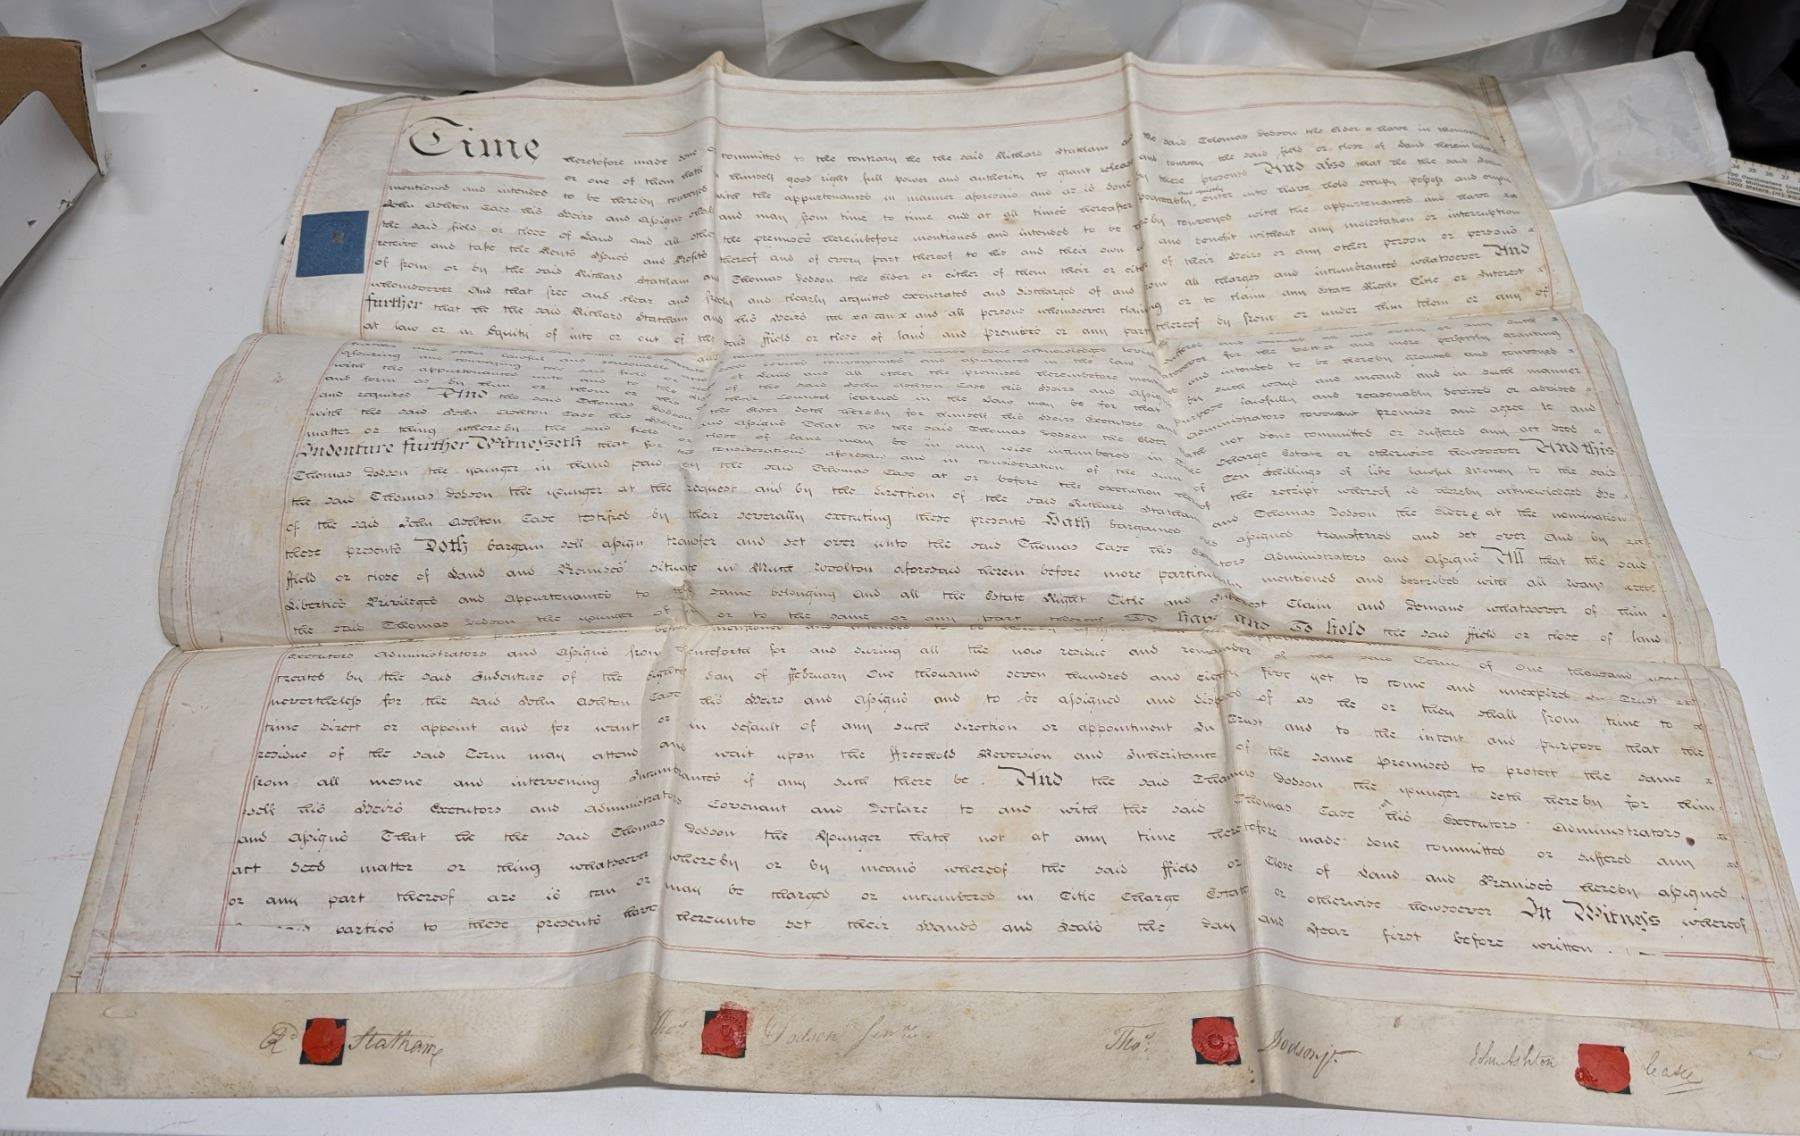 Time heretofore made done or committed to the contrary he the said Richard Statham and the said Thomas Dodson the elder or have in themselves
or one of them hath in himself good right full power and authority to grant release and convey the said field or close of Land hereinbefore
mentioned and intended to be hereby conveyed with the appurtenances in manner aforesaid and as is done by these presents And also that he the said
John Ashton Case his Heirs and Assigns shall and may from time to time and at all times hereafter peaceably and quietly enter into have hold occupy possess and enjoy
the said field or close of Land and all other the premises hereinbefore mentioned and intended to be hereby conveyed with the appurtenances and have
receive and take the Rents Issues and Profits thereof and of every part thereof to his and their own and benefit without any molestation or interruption
of from or by the said Richard Statham and Thomas Dodson the elder or either of them their or either of their Heirs or any other person or persons
whomsoever And that free and clear and freely and clearly acquitted exonerated and discharged of and from all charges and incumbrances whatsoever And
further that he the said Richard Statham and his Heirs and all persons whomsoever claiming or to claim any Estate Right Title or Interest
at law or in Equity of into or out of the said ffield or close of land and premises or any part thereof by from or under him them or any of
lawful and reasonable
assuring and conveying the said field for the better and more perfectly granting
with the appurtenances unto and to the of Land and all other the premises hereinbefore and intended to be hereby granted and conveyed
and form as by him or them or his of the said John Ashton Case his Heirs and Assigns by such ways and means and in such manner
and required And the said Thomas Dodson the elder doth hereby for himself his Heirs Executors and Administrators covenant promise and agree to and
with the said John Ashton Case his Heirs and Assigns That he the said Thomas Dodson the elder hath not done committed or suffered any act deed
matter or thing whereby the said field or close of land may be in any wise incumbered in Charge Estate or otherwise howsoever And this
Indenture further Witnesseth that for the considerations aforesaid and in consideration of the sum of Ten Shillings of like lawful Money to the said
Thomas Dodson the younger in hand paid by the said Thomas Case at or before the execution the receipt whereof is hereby acknowledged He
the said Thomas Dodson the younger at the request and by the direction of the said Richard Statham and Thomas Dodson the elder at the nomination
of the said John Ashton Case testified by their severally executing these presents Hath bargained assigned transferred and set over and by
these presents Doth bargain sell assign transfer and set over unto the said Thomas Case his Administrators and Assigns All that the said
ffield or close of Land and Premises situate in Much Woolton aforesaid herein before more particularly mentioned and described with all ways
Liberties Privileges and Appurtenances to the same belonging And all the Estate Right Title and Interest Claim and Demand whatsoever of him
the said Thomas Dodson the younger of or to the same or any part thereof To have and To hold the said ffield or close of land
before mentioned and intended to be
executors Administrators and Assigns from henceforth for and during all the now residue and remainder of the said Term of One thousand
created by the said Indenture of the eighth day of ffebruary One thousand seven hundred and eighty five yet to come and unexpired Trust
nevertheless for the said John Ashton Case his Heirs and Assigns and to be assigned and disposed of as he or they shall from time to
time direct or appoint and for want or in default of any such direction or appointment In Trust and to the intent and purpose that the
residue of the said Term may attend and wait upon the ffreehold Reversion and Inheritance of the same Premises to protect the same
from all mesne and intervening Incumbrances if any such there be. And the said Thomas Dodson the younger doth hereby for him
self his Heirs Executors and Administrators Covenant and declare to and with the said Thomas Case his Executors Administrators
and Assigns That he the said Thomas Dodson the Younger hath not at any time heretofore made done committed or suffered any
act deed matter or thing whatsoever whereby or by means whereof the said ffield or Close of Land and Premises hereby assigned
or any part thereof are is can or may be charged or incumbered in Title Charge Estate or otherwise howsoever In Witness whereof
parties to these presents have hereunto set their Hands and Seals the Day and Year first before written.
Rd Statham Thos Dodson Senr. Thos. Dodson jr. John Ashton Case